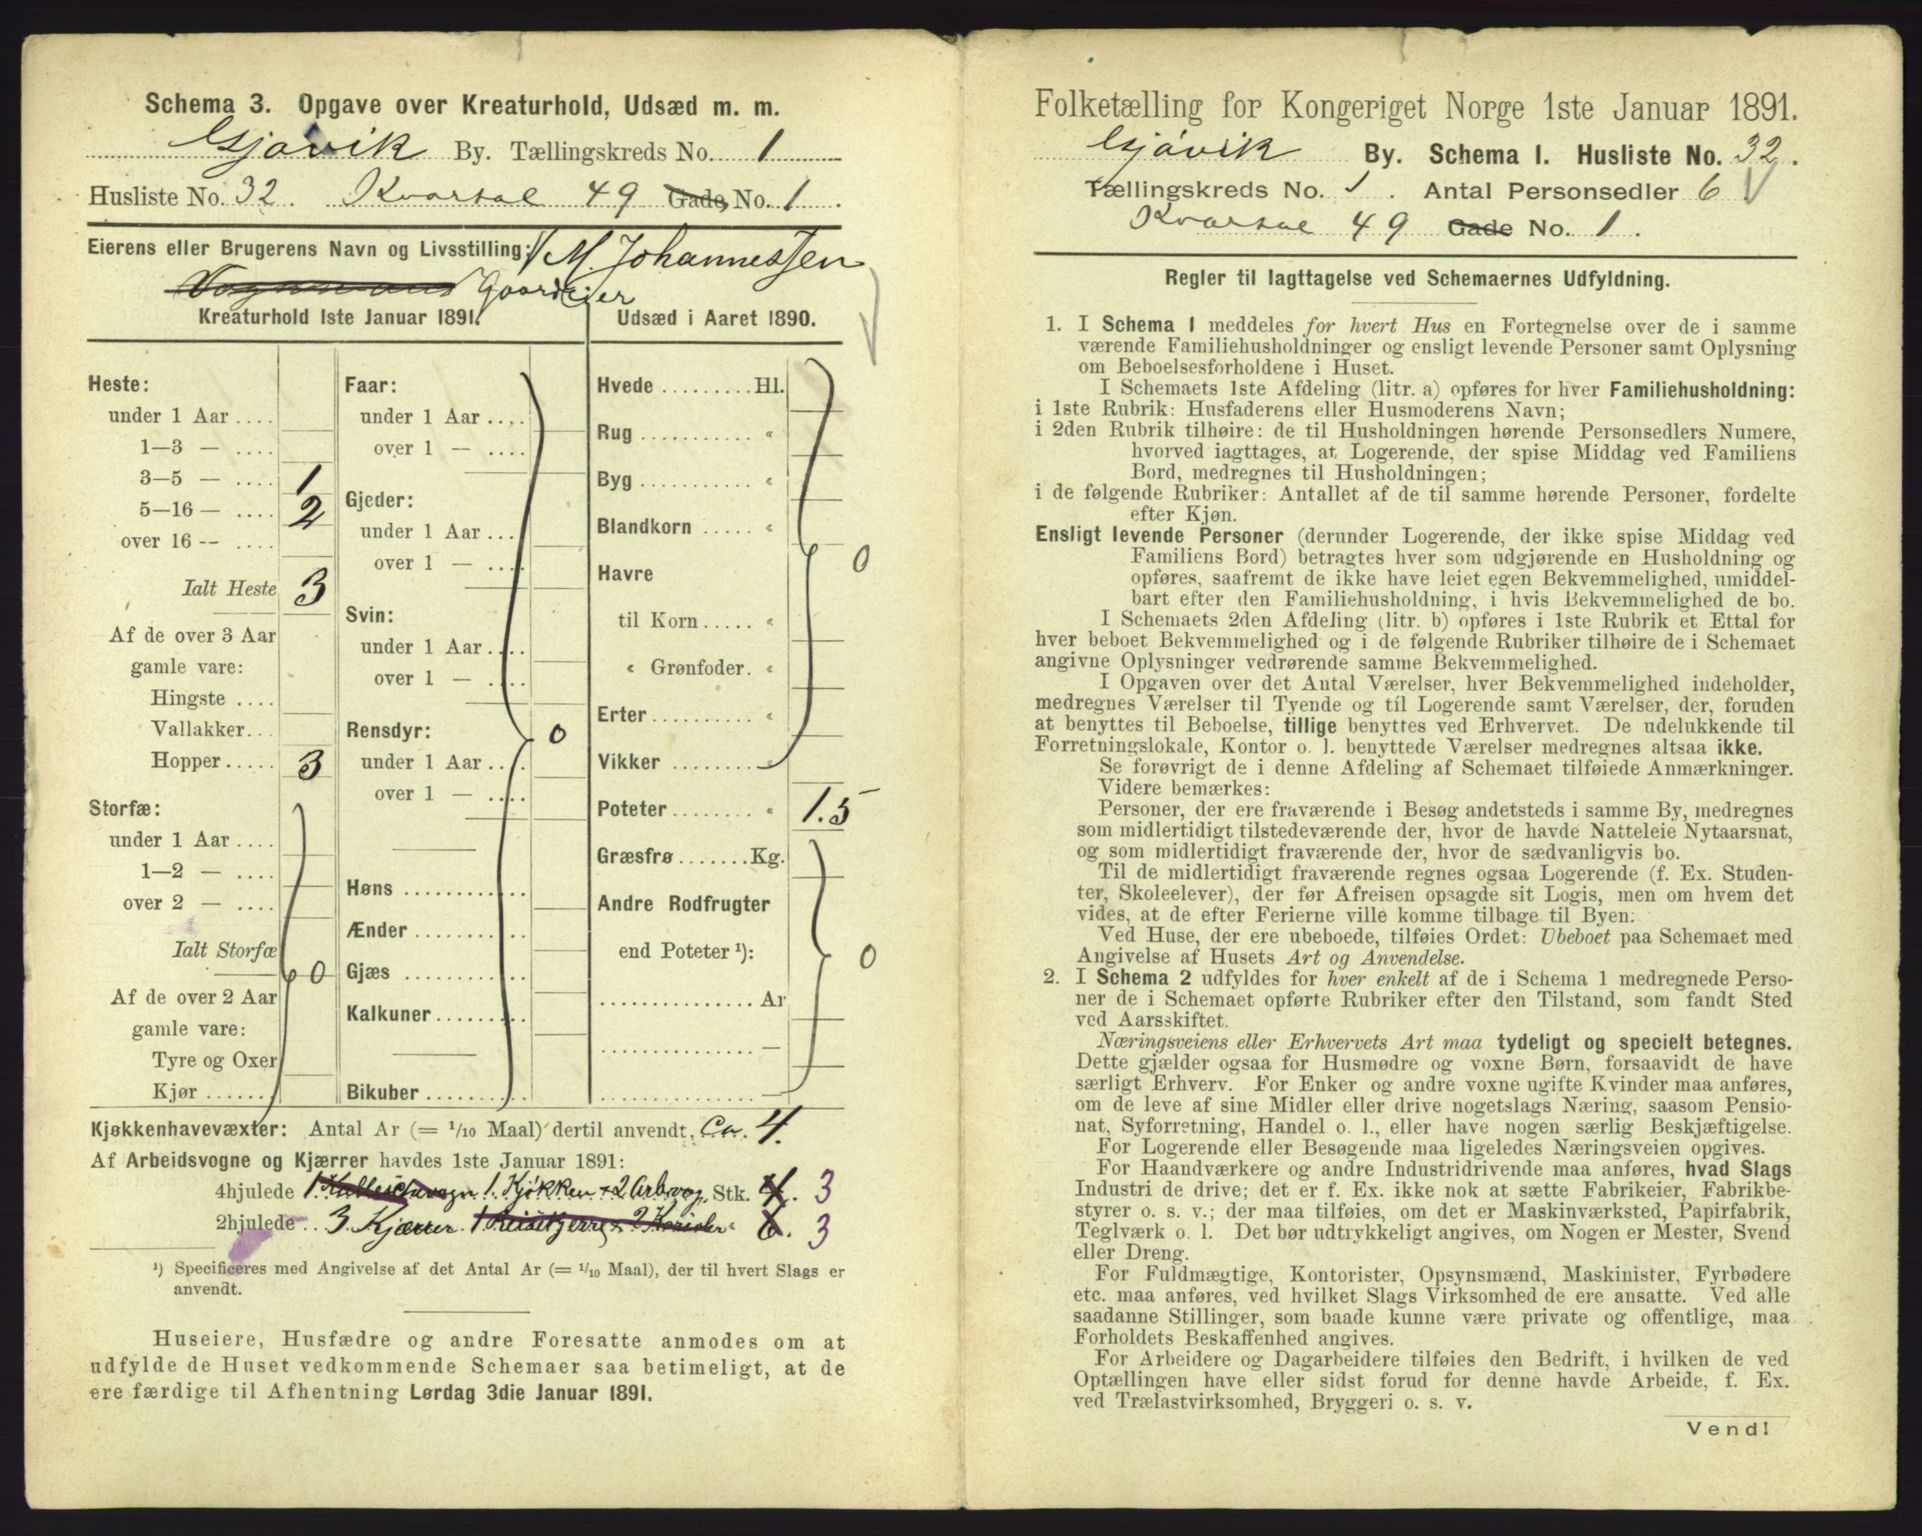 Schema 3. Opgave over Kreaturhold, Udsæd m. m.
Gjøvik By. Tællingskreds No. 1
Husliste No. 32 Kvartal 49 Gade, No. 1.
Eierens eller Brugerens Navn og Livsstilling: M. Johannessen
Gaardeier
Kreaturhold 1ste Januar 1891.
Heste:
under 1 Aar ....
1—3 — ....
3—5 — .... 1
5—16 — .... 2
over 16 -- ....
Ialt Heste 3
Af de over 3 Aar
gamle vare:
Hingste ....
Vallakker...
Hopper..... 3
Storfæ:
under 1 Aar ....
1—2 — ....
over 2 — ....
Ialt Storfæ 0
Af de over 2 Aar
gamle vare:
Tyre og Oxer
Kjør .......
Faar:
under 1 Aar ....
over 1 — ....
Gjeder:
under 1 Aar ...
over 1 — ....
Svin:
under 1 Aar ....
over 1 — ....
Rensdyr: 0
under 1 Aar ....
over 1 — ....
Høns ............
Ænder ...........
Gjæs ............
Kalkuner.........
Bikuber..........
Udsæd i Aaret 1890.
Hvede ........ Hl.
Rug ........... «
Byg ........... «
Blandkorn ..... « 0
Havre
til Korn..... «
« Grønfoder. «
Erter.......... «
Vikker ........ «
Poteter........ « 1.5
Græsfrø....... Kg.
Andre Rodfrugter
end Poteter ¹): 0
............... Ar
............... —
...............
Kjøkkenhavevæxter: Antal Ar (= ¹/₁₀ Maal) dertil anvendt. Ca. 4.
Af Arbeidsvogne og Kjærrer havdes 1ste Januar 1891:
4hjulede 1 Kjøkken + 2 Arb.vog. Stk. 4. 3
2hjulede ... 3 Kjærrer. 1 Reisekjerre « 6. 3
¹) Specificeres med Angivelse af det Antal Ar (= ¹/₁₀ Maal), der til hvert Slags er
anvendt.
Huseiere, Husfædre og andre Foresatte anmodes om at
udfylde de Huset vedkommende Schemaer saa betimeligt, at de
ere færdige til Afhentning Lørdag 3die Januar 1891.
Folketælling for Kongeriget Norge 1ste Januar 1891.
Gjøvik By. Schema 1. Husliste No. 32.
Tællingskreds No. 1. Antal Personsedler 6
Kvartal 49 Gade No. 1.
Regler til Iagttagelse ved Schemaernes Udfyldning.
1. I Schema 1 meddeles for hvert Hus en Fortegnelse over de i samme
værende Familiehusholdninger og ensligt levende Personer samt Oplysning
om Beboelsesforholdene i Huset.
I Schemaets 1ste Afdeling (litr. a) opføres for hver Familiehusholdning:
i 1ste Rubrik: Husfaderens eller Husmoderens Navn;
i 2den Rubrik tilhøire: de til Husholdningen hørende Personsedlers Numere,
hvorved iagttages, at Logerende, der spise Middag ved Familiens
Bord, medregnes til Husholdningen;
i de følgende Rubriker: Antallet af de til samme hørende Personer, fordelte
efter Kjøn.
Ensligt levende Personer (derunder Logerende, der ikke spise Middag ved
Familiens Bord) betragtes hver som udgjørende en Husholdning og
opføres, saafremt de ikke have leiet egen Bekvemmelighed, umiddel-
bart efter den Familiehusholdning, i hvis Bekvemmelighed de bo.
I Schemaets 2den Afdeling (litr. b) opføres i 1ste Rubrik et Ettal for
hver beboet Bekvemmelighed og i de følgende Rubriker tilhøire de i Schemaet
angivne Oplysninger vedrørende samme Bekvemmelighed.
I Opgaven over det Antal Værelser, hver Bekvemmelighed indeholder,
medregnes Værelser til Tyende og til Logerende samt Værelser, der, foruden
at benyttes til Beboelse, tillige benyttes ved Erhvervet. De udelukkende til
Forretningslokale, Kontor o. l. benyttede Værelser medregnes altsaa ikke.
Se forøvrigt de i denne Afdeling af Schemaet tilføiede Anmærkninger.
Videre bemærkes:
Personer, der ere fraværende i Besøg andetsteds i samme By, medregnes
som midlertidigt tilstedeværende der, hvor de havde Natteleie Nytaarsnat,
og som midlertidigt fraværende der, hvor de sædvanligvis bo.
Til de midlertidigt fraværende regnes ogsaa Logerende (f. Ex. Studen-
ter, Skoleelever), der før Afreisen opsagde sit Logis, men om hvem det
vides, at de efter Ferierne ville komme tilbage til Byen.
Ved Huse, der ere ubeboede, tilføies Ordet: Ubeboet paa Schemaet med
Angivelse af Husets Art og Anvendelse.
2. I Schema 2 udfyldes for hver enkelt af de i Schema 1 medregnede Perso-
ner de i Schemaet opførte Rubriker efter den Tilstand, som fandt Sted
ved Aarsskiftet.
Næringsveiens eller Erhvervets Art maa tydeligt og specielt betegnes.
Dette gjælder ogsaa for Husmødre og voxne Børn, forsaavidt de have
særligt Erhverv. For Enker og andre voxne ugifte Kvinder maa anføres,
om de leve af sine Midler eller drive nogetslags Næring, saasom Pensio-
nat, Syforretning, Handel o. l., eller have nogen særlig Beskjæftigelse.
For Logerende eller Besøgende maa ligeledes Næringsveien opgives.
For Haandværkere og andre Industridrivende maa anføres, hvad Slags
Industri de drive; det er f. Ex. ikke nok at sætte Fabrikeier, Fabrikbe-
styrer o. s. v.; der maa tilføies, om det er Maskinværksted, Papirfabrik,
Teglværk o. l. Det bør udtrykkeligt angives, om Nogen er Mester, Svend
eller Dreng.
For Fuldmægtige, Kontorister, Opsynsmænd, Maskinister, Fyrbødere
etc. maa anføres, ved hvilket Slags Virksomhed de ere ansatte. Ved alle
saadanne Stillinger, som baade kunne være private og offentlige, maa
Forholdets Beskaffenhed angives.
For Arbeidere og Dagarbeidere tilføies den Bedrift, i hvilken de ved
Optællingen have eller sidst forud for denne havde Arbeide, f. Ex.
ved Trælastvirksomhed, Bryggeri o. s. v.
Vend!